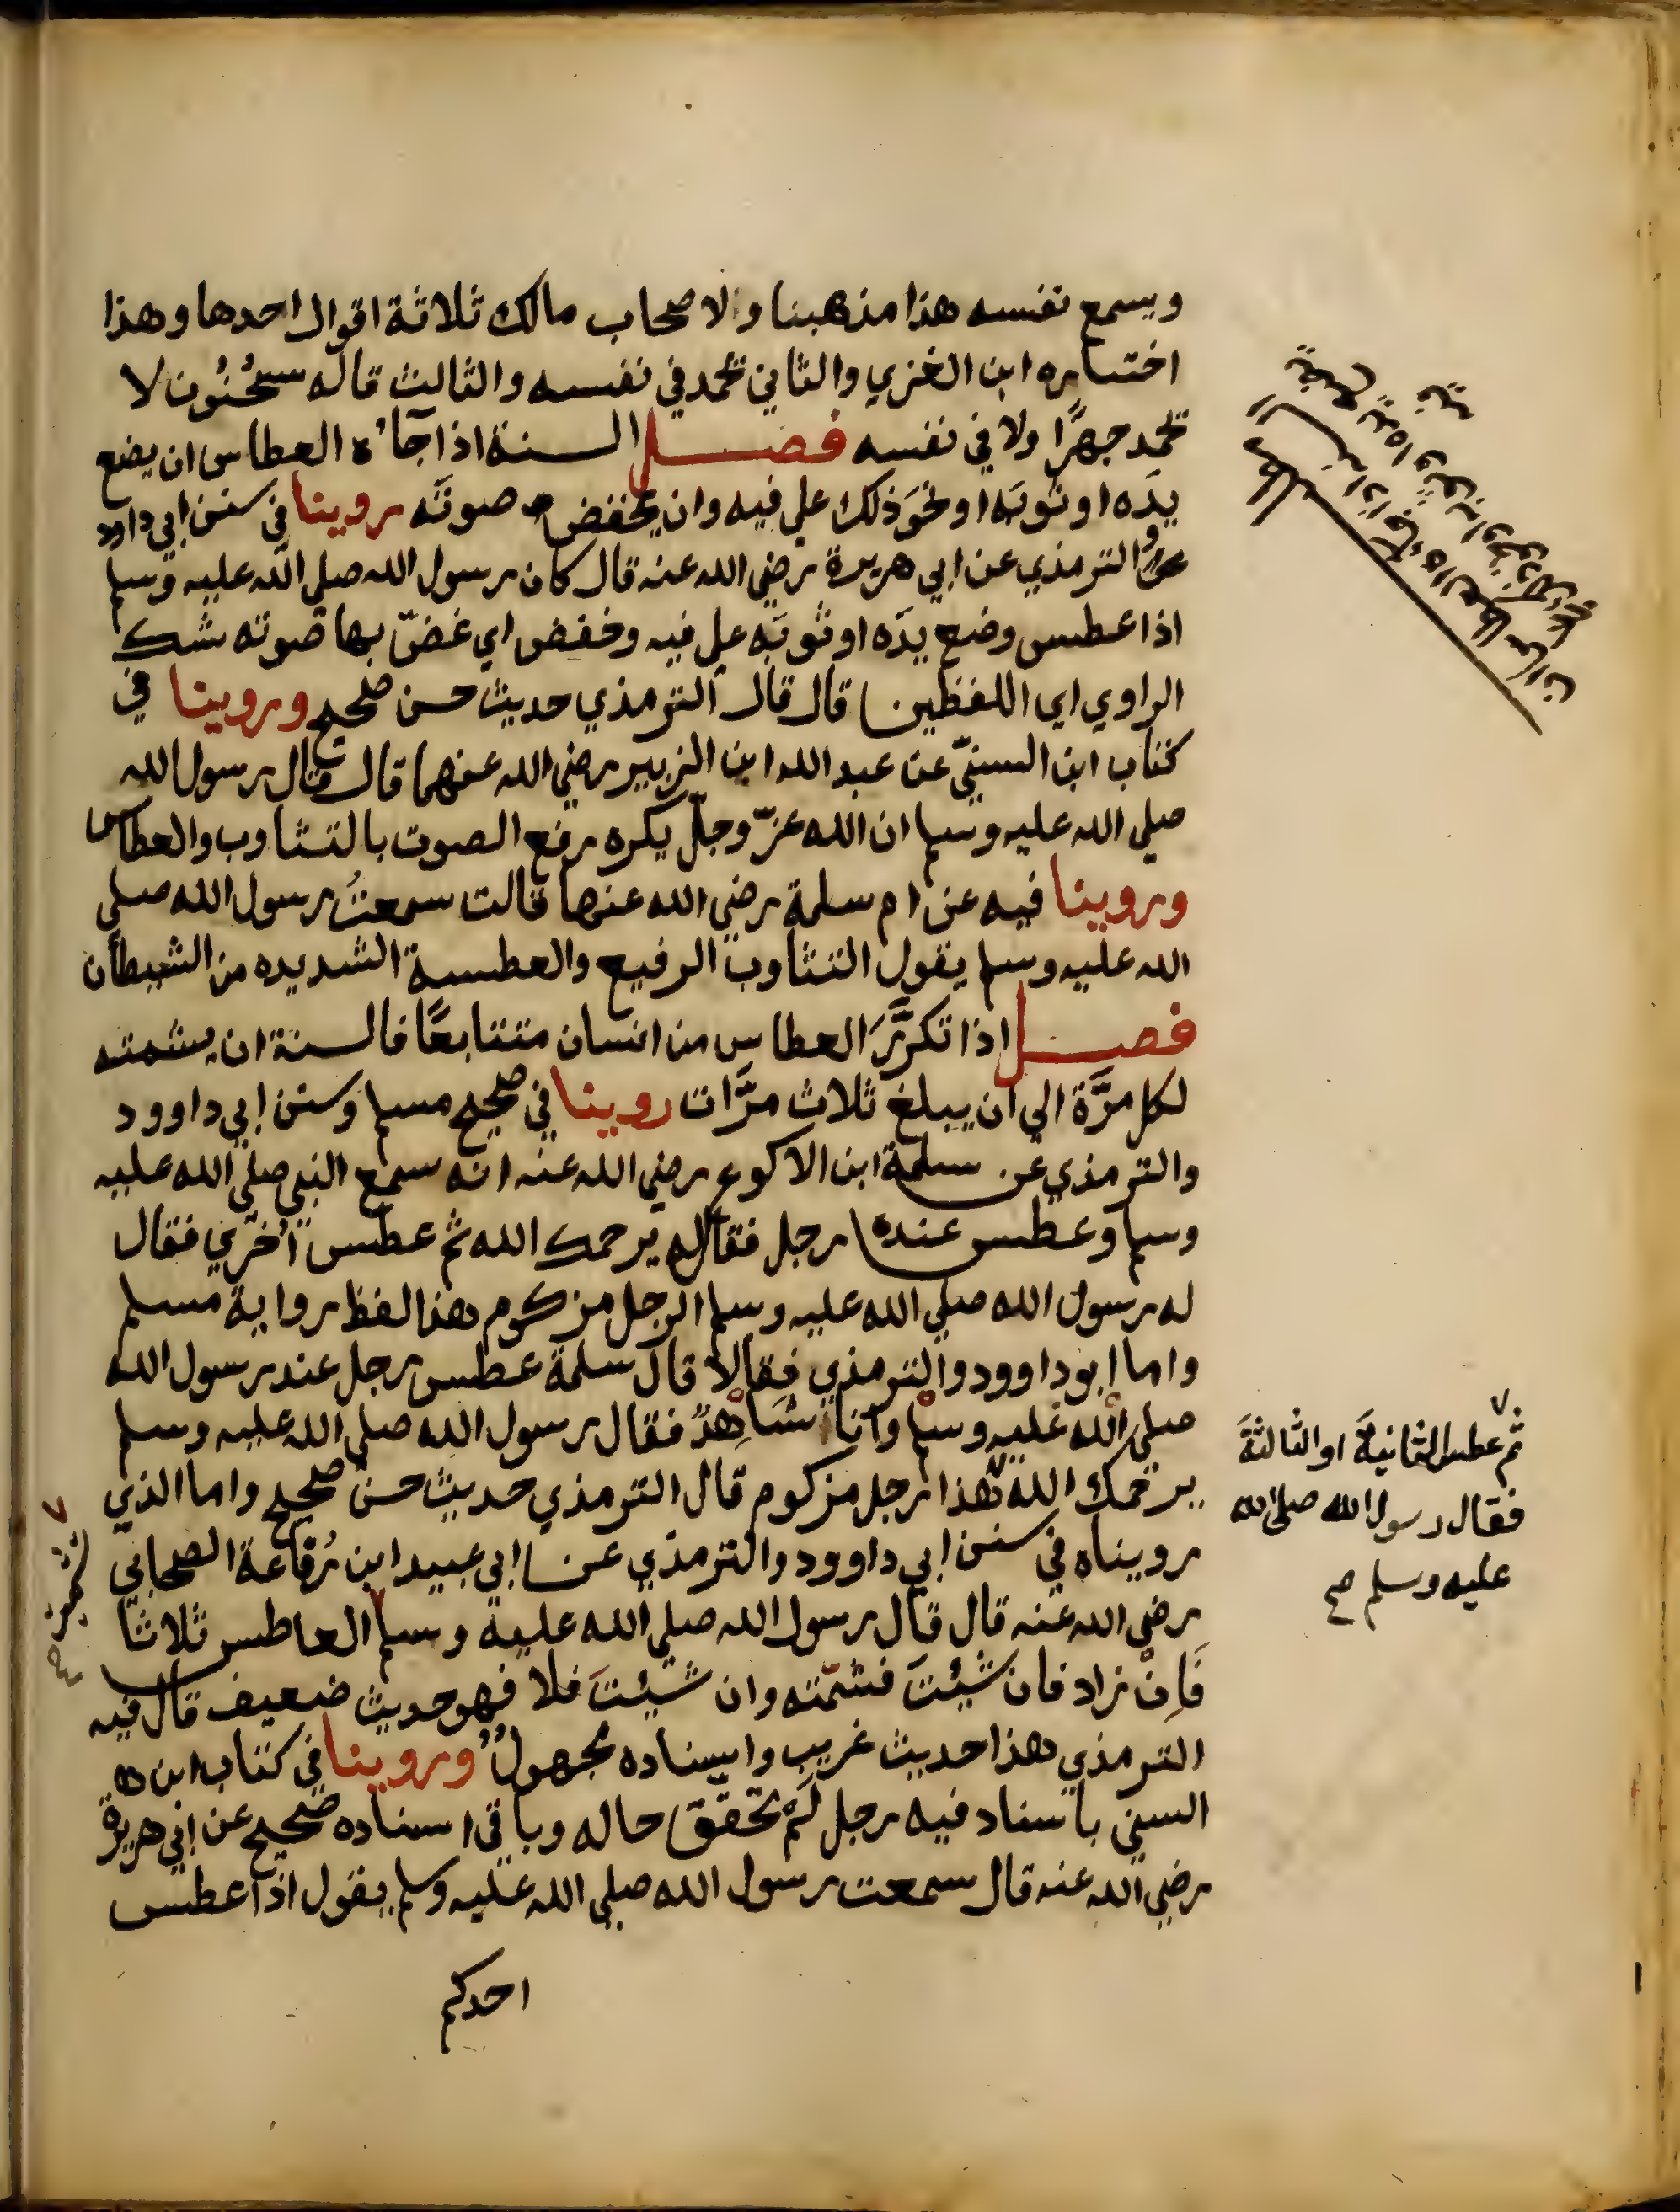 ويسمع نفسه هذا مذهبنا ولاصحاب مالك ثلاثة اقوال احدها وهذا
اختساره ابن الغزي والثاني تحمد في نفسه والثالث قاله سحْنُون لا
تحمد جهرًا ولا في نفسه فصل السنة اذا جآءه العطاس ان يضع
يدَه او ثوبَه او نحوَ ذلك على فيه وان يخفض صوتَه روينا في سنن ابي داود
والترمذي عن ابي هريرة رضي الله عنه قال كان رسول الله صلى الله عليه وسلم
اذا عطس وضع يدَه او ثوبَه على فيه وخفض اي غضّ بها صوته شك
الراوي اي اللفظين قال قال الترمذي حديث حسن صحيح وروينا في
كتاب ابن السنيّ عن عبد الله ابن الزبير رضي الله عنهما قال قال رسول الله
صلى الله عليه وسلم ان الله عزّ وجلّ يكره رفع الصوت بالتثاوب والعطاس
وروينا فيه عن ام سلمة رضي الله عنها قالت سمعتُ رسول الله صلى
الله عليه وسلم يقول التثاوب الرفيع والعطسة الشديده من الشيطان
فصل اذا تكرَّرَ العطاس من انسان متتابعًا فالسنة ان يشمته
لكل مرَّة الى ان يبلغ ثلاث مرَّات روينا في صحيح مسلم وسنن ابي داوود
والترمذي عن سلمة ابن الاكوع رضي الله عنه انه سمع النبي صلى الله عليه
وسلم وعطس عنده رجل فقال له يرحمك الله ثم عطس اُخرَي فقال
له رسول الله صلى الله عليه وسلم الرجل مزكوم هذا لفظ رواية مسلم
واما ابو داوود والترمذي فقالا قال سلمة عطس رجل عند رسول الله
صلى الله عليه وسلم وانا شَاهِدٌ فقال رسول الله صلى الله عليه وسلم
يرحمك الله هذا رجل مزكوم قال الترمذي حديث حسن صحيح واما الذي
رويناه في سنن ابي داوود والترمذي عن ابي عبيد ابن رُفاعة الصحابي
رضي الله عنه قال قال رسول الله صلى الله عليه وسلم العاطس ثلاثا
فَاِنْ زاد فان شَيْئتَ فشمّته وان شَيْئتَ فلا فهو حديث ضعيف قال فيه
الترمذي هذا حديث غريب واسناده مجهولٌ وروينا في كتاب ابن
السني باسناد فيه رجل لَمْ تحقق حاله وباقي اسناده صحيح عن ابي هريرة
رضي الله عنه قال سمعت رسول الله صلى الله عليه وسلم يقول اذا عطس
احدكم
ثم عطس الثانيةَ او الثالثةَ
فقال رسول الله صلى الله
عليه وسلم صح